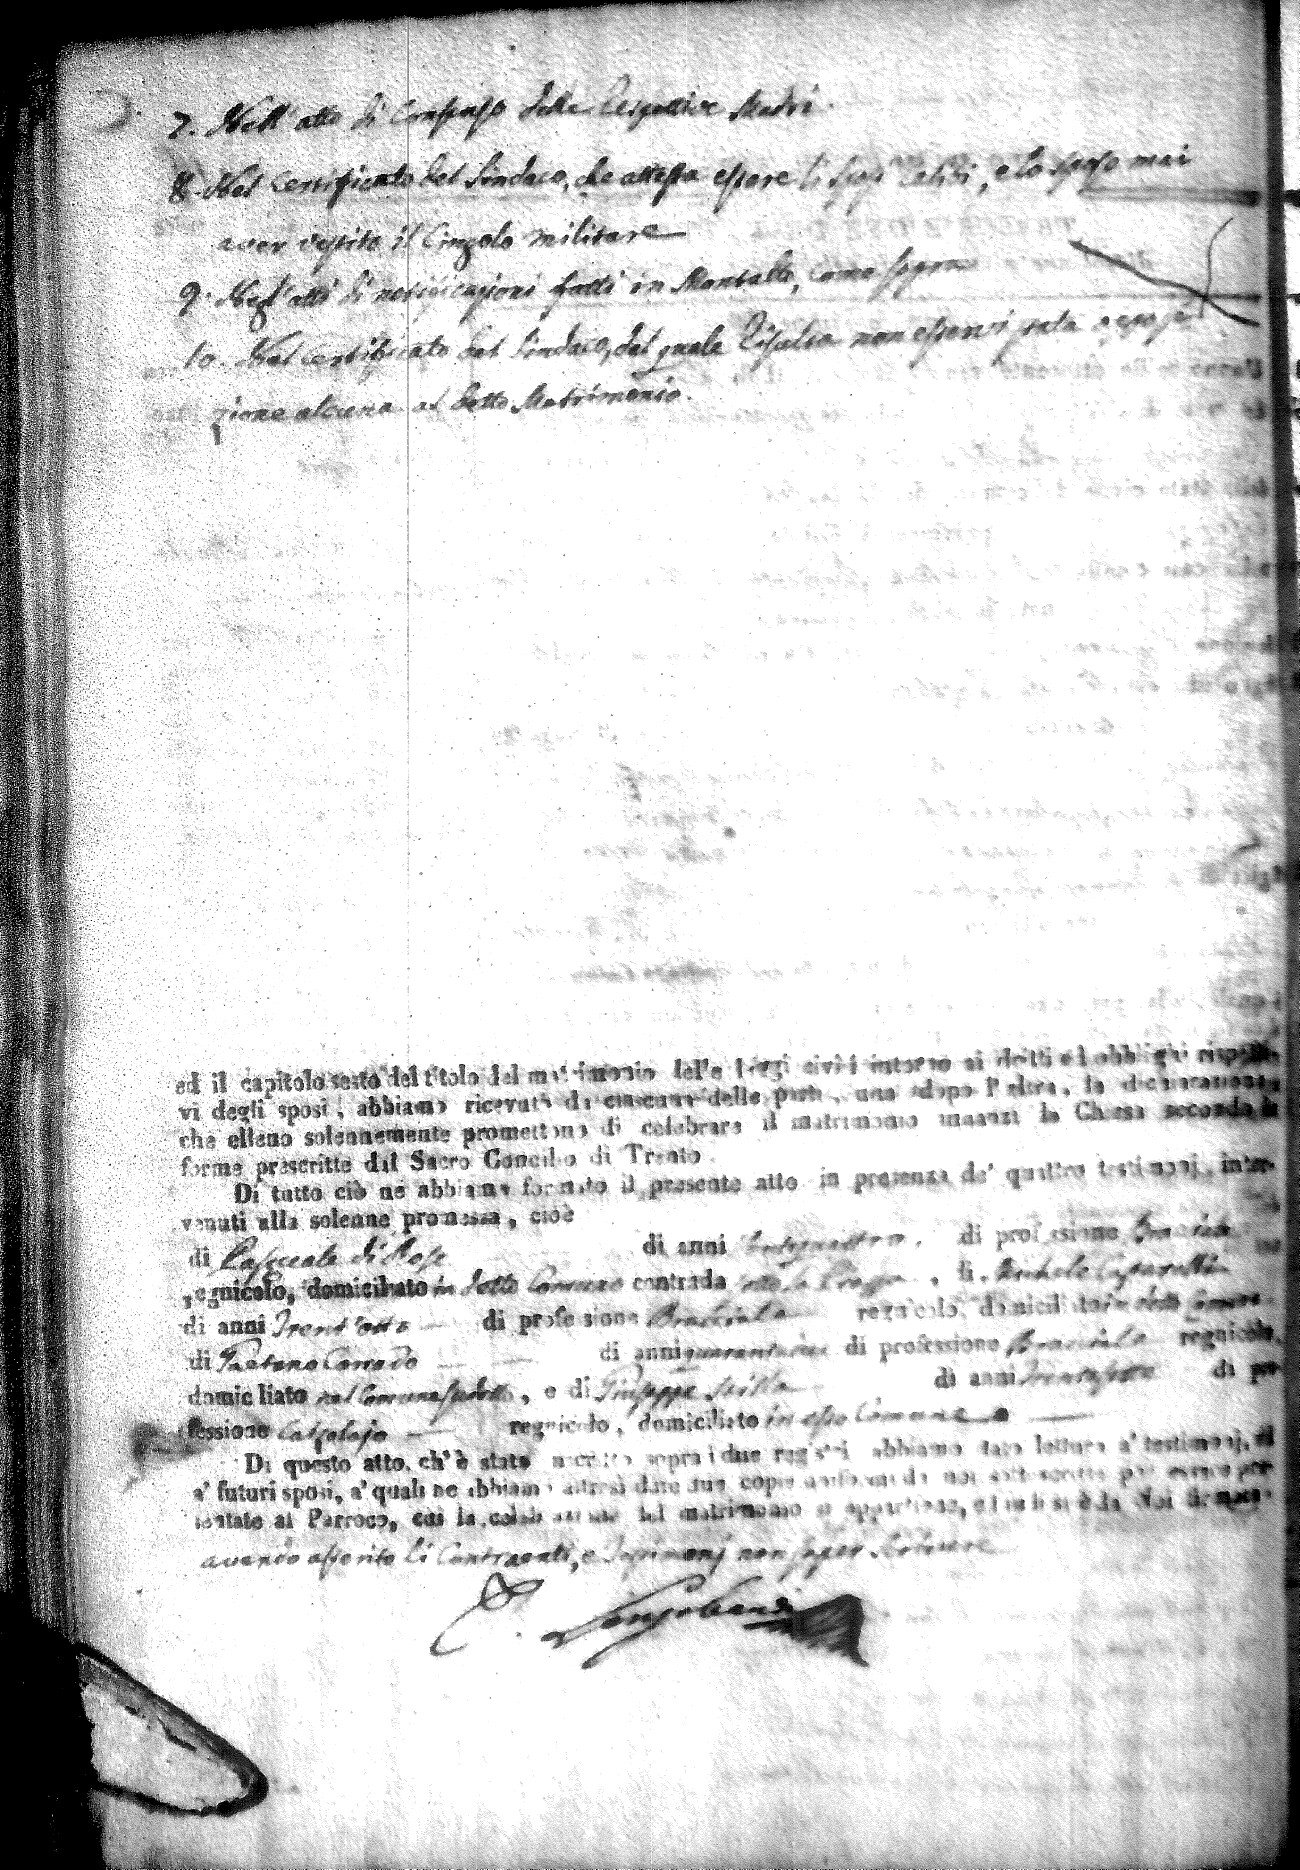 7. Nell'atto di Consenso delle Respettive Madri.
8. Nel Certificato del Sindaco, che attesta essere li sposi celibi, e lo sposo mai
aver vestito il Cingolo militare
9. Negl'atti di notificazioni fatti in Montalto, come sopra
10. Nel Certificato del Sindaco, dal quale risulta non esservi stata opposi
zione alcuna al detto Matrimonio.
ed il capitolo sesto del titolo del matrimonio delle leggi civili intorno ai dritti ed obblighi rispetti-
vi degli sposi, abbiamo ricevuto da ciascuna delle parti, una dopo l'altra, la dichiarazione
che elleno solennemente promettono di celebrare il matrimonio innanzi la Chiesa secondo le
forme prescritte dal Sacro Concilio di Trento.
Di tutto ciò ne abbiamo formato il presente atto in presenza de' quattro testimonj inter-
venuti alla solenne promessa, cioè
di Pasquale di Rose di anni di professione Bracciale
regnicolo, domiciliato in detto Comune contrada, di Michele
di anni Trent'otto di professione Bracciale regnicolo, domiciliato in detto Comune
di Gaetano Corrado di anni di professione Bracciale regnicolo,
domiciliato nel Comune sudetto, e di Giuseppe di anni di pro
fessione Calzolajo regnicolo, domiciliato in esso Comune
Di questo atto, ch'è stato inscritto sopra i due registri abbiamo dato lettura a' testimonj, ed
a' futuri sposi, a' quali ne abbiamo altresì date due copie uniformi da noi sottoscritte per essere pre
sentate al Parroco, cui la celebrazione del matrimonio si appartiene, ed indi si è da Noi firmato
avendo asserito li Contraenti, e Testimonj non saper scrivere